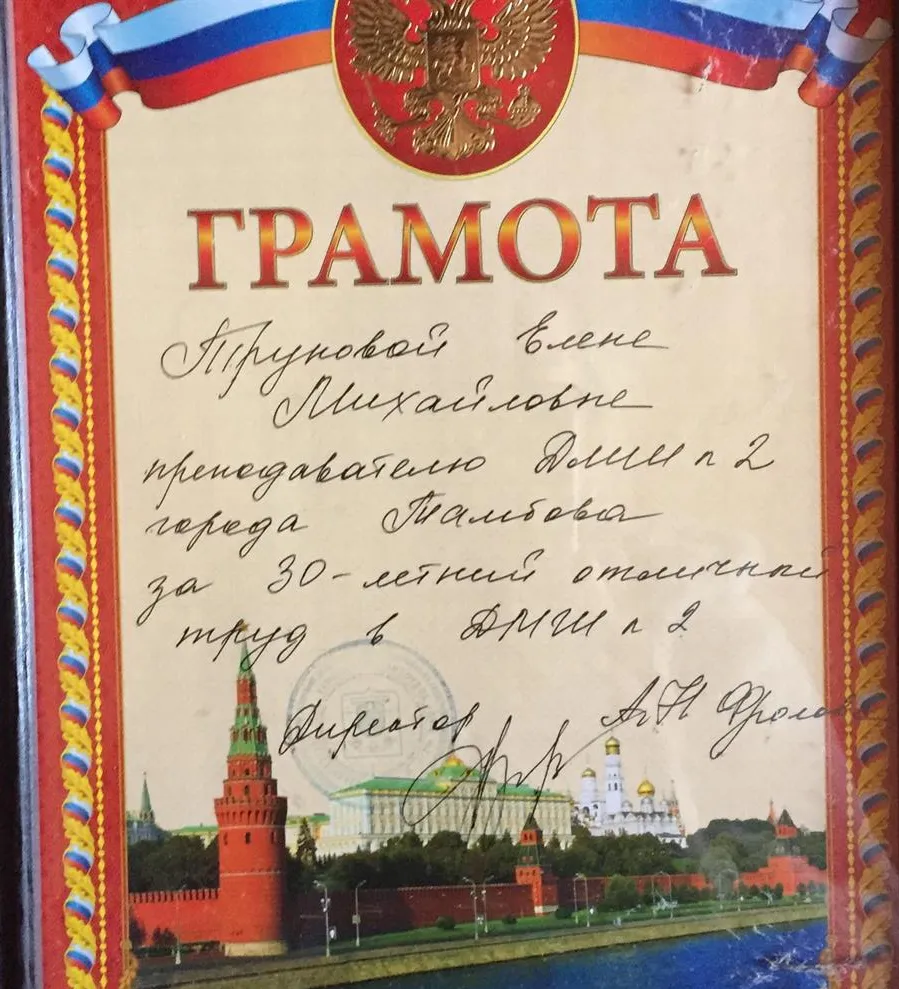 ГРАМОТА
Труновой Елене
Михайловне
преподавателю ДМШ № 2
города Тамбова
за 30-летний отличный
труд в ДМШ № 2
Директор А.Н Фролов